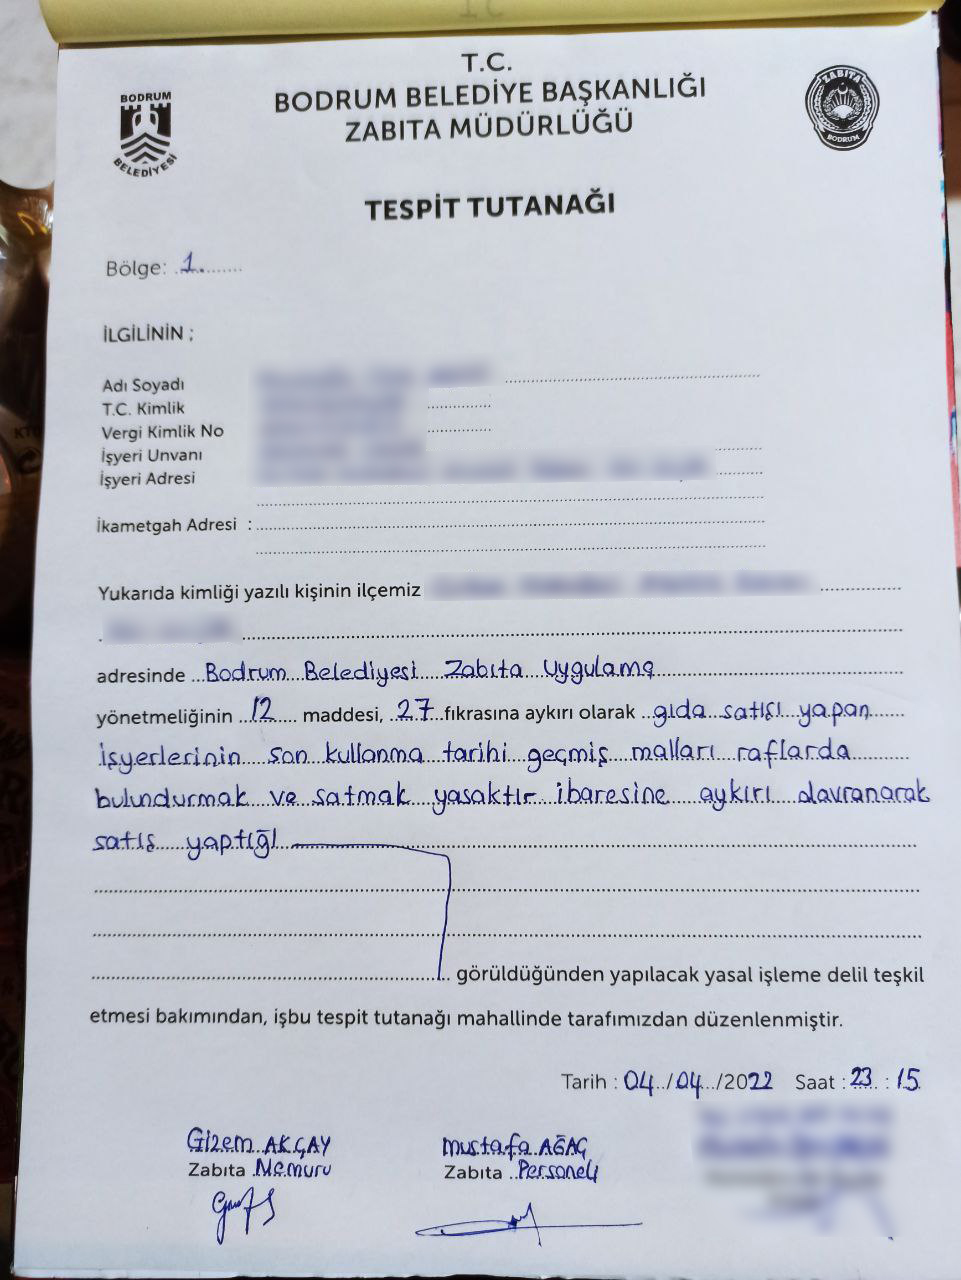 T.C.
BODRUM BELEDİYE BAŞKANLIĞI
ZABITA MÜDÜRLÜĞÜ
BODRUM
BELEDİYESİ
ZABITA
BODRUM
TESPİT TUTANAĞI
Bölge: 1
İLGİLİNİN ;
Adı Soyadı
T.C. Kimlik
Vergi Kimlik No
İşyeri Unvanı
İşyeri Adresi
İkametgah Adresi :
Yukarıda kimliği yazılı kişinin ilçemiz
adresinde Bodrum Belediyesi Zabıta Uygulama
yönetmeliğinin 12 maddesi, 27 fıkrasına aykırı olarak gıda satışı yapan
işyerlerinin son kullanma tarihi geçmiş malları raflarda
bulundurmak ve satmak yasaktır ibaresine aykırı davranarak
satış yaptığı
görüldüğünden yapılacak yasal işleme delil teşkil
etmesi bakımından, işbu tespit tutanağı mahallinde tarafımızdan düzenlenmiştir.
Tarih : 04 / 04 /2022 Saat : 23 : 15
Gizem AKÇAY
Zabıta Memuru
Mustafa AĞAÇ
Zabıta Personeli